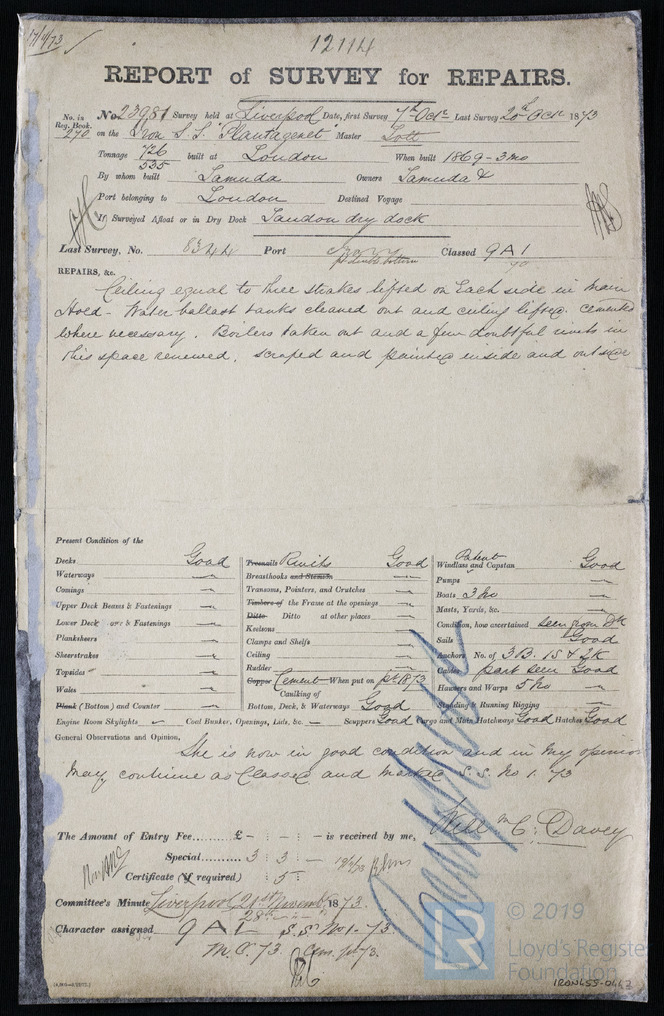 12114
REPORT of SURVEY for REPAIRS.
No. in Reg. Book. 270
No. 23981 Survey held at Liverpool Date, first Survey 7th Octr. Last Survey 20th Octr. 1873
on the Iron S.S. "Plantagenet" Master Lott
Tonnage 726 535 built at London When built 1869-3mo
By whom built Samuda Owners Samuda &
Port belonging to London Destined Voyage
If Surveyed Afloat or in Dry Dock Sandon dry dock
Last Survey, No. 8344 Port Classed 9A1
REPAIRS, &c.
Ceiling equal to three strakes lifted on Each side in main
Hold - Water ballast tanks cleaned out and ceiling lifted. cemented
where necessary. Boilers taken out and a few doubtful rivets in
this space renewed. Scraped and painted inside and outside
Present Condition of the
Decks Good
Waterways
Comings
Upper Deck Beams & Fastenings
Lower Deck & Fastenings
Planksheers
Sheerstrakes
Topsides
Wales
Plank (Bottom) and Counter
Treenails Rivits Good
Breasthooks and Stemson
Transoms, Pointers, and Crutches
Timbers of the Frame at the openings
Ditto Ditto at other places
Keelsons
Clamps and Shelfs
Ceiling
Rudder
Copper Cement When put on pt 1873
Caulking of
Bottom, Deck, & Waterways Good
Patent
Windlass and Capstan Good
Pumps
Boats 3 no
Masts, Yards, &c.
Condition, how ascertained seen from Dk
Sails Good
Anchors No. of 3B. 1S & 2K
Cables part seen Good
Hawsers and Warps 5 no
Standing & Running Rigging
Engine Room Skylights Coal Bunker, Openings, Lids, &c. Scuppers Good Cargo and Main Hatchways Good Hatches Good
General Observations and Opinion,
She is now in good condition and in my opinion
May continue as Classed and marked S.S. No 1. '73
The Amount of Entry Fee £ - : - : - is received by me,
Will m C. Davey
Special 3 : 3 : -
Certificate (if required) : 5 :
Committee's Minute Liverpool 21st Novemb 1873.
28th
Character assigned 9A1 S.S. No 1-73.
M.C. 73. Cem. pt 73.
© 2019
LR
Lloyd's Register
Foundation
IRON455-0412